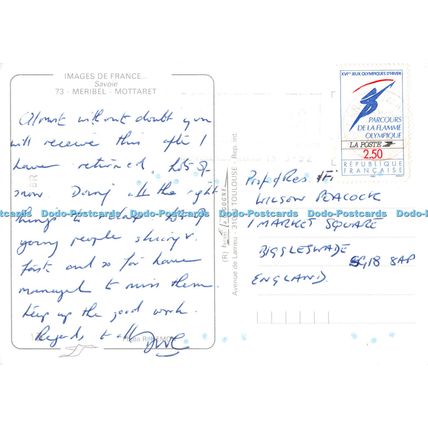 IMAGES DE FRANCE...
Savoie
73 - MERIBEL - MOTTARET
Almost without doubt you
will receive this after I
have returned. Lots of
snow. Doing all the right
things
young people skiing
fast and so far have
managed to miss them
Keep up the good work.
Regards to all
Avenue de Larrieu 31100 TOULOUSE Rep. Int.
XVIes JEUX OLYMPIQUES D'HIVER
PARCOURS
DE LA FLAMME
OLYMPIQUE
LA POSTE
2,50
REPUBLIQUE
FRANÇAISE
WILSON PEACOCK
1 MARKET SQUARE
BIGGLESWADE
SG18 8AP
ENGLAND
Dodo-Postcards Dodo-Postcards Dodo-Postcards Dodo-Postcards